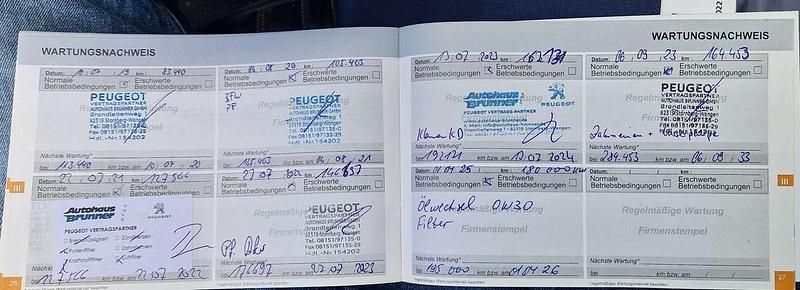 WARTUNGSNACHWEIS
Datum: 10 07 19 km: 83.440
Normale Betriebsbedingungen
Erschwerte Betriebsbedingungen
PEUGEOT
VERTRAGSPARTNER
AUTOHAUS BRUNNER GMBH
Brandleitenweg 1
82319 Starnberg-Wangen
Tel. 08151/97135-0
Fax 08151/97135-29
Hdl.-Nr. 154202
Nächste Wartung*
bei 113.440 km bzw. am 10/07/20
Datum: 04 08 20 km: 105.403
Normale Betriebsbedingungen
Erschwerte Betriebsbedingungen
Regelmäßige Wartung
PEUGEOT
VERTRAGSPARTNER
AUTOHAUS BRUNNER GMBH
Brandleitenweg 1
82319 Starnberg-Wangen
Tel. 08151/97135-0
Fax 08151/97135-29
Hdl.-Nr. 154202
Nächste Wartung*
km bzw. am 04/08/21
Datum: 22 07 21 km: 127.566
Normale Betriebsbedingungen
Erschwerte Betriebsbedingungen
Autohaus Brunner
PEUGEOT
PEUGEOT VERTRAGSPARTNER
Bremsflüssigkeit
Zündkerzen
Pollenfilter
Zahnriemen
Kraftstofffilter
Luftfilter
Nächste
km bzw. am 22.07.2022
Datum: 27 07 2022 km: 146657
Normale Betriebsbedingungen
Erschwerte Betriebsbedingungen
Regelmäßige Wartung
Firmenstempel
PEUGEOT
VERTRAGSPARTNER
AUTOHAUS BRUNNER GMBH
Brandleitenweg 1
82319 Starnberg-Wangen
Tel. 08151/97135-0
Fax 08151/97135-29
Hdl.-Nr. 154202
Nächste Wartung*
bei 176697 km bzw. am 27.07.2023
26
III
WARTUNGSNACHWEIS
Datum: 13.07 2023 km: 162131
Normale Betriebsbedingungen
Erschwerte Betriebsbedingungen
Autohaus Brunner
PEUGEOT
PEUGEOT VERTRAGS-PARTNER
Nächste Wartung*
bei 192131 km bzw. am 13.07 2024
Datum: 06 09 23 km: 164.453
Normale Betriebsbedingungen
Erschwerte Betriebsbedingungen
PEUGEOT
VERTRAGSPARTNER
AUTOHAUS BRUNNER GMBH
Brandleitenweg 1
82319 Starnberg-Wangen
Tel. 08151/97135-0
Fax 08151/97135-29
Hdl.-Nr. 154202
Zahnriemen + Wasserpumpe
Nächste Wartung*
bei 284.453 km bzw. am 06 09 33
Datum: 01.04 25 km: 180 000
Normale Betriebsbedingungen
Erschwerte Betriebsbedingungen
Regelmäßige Wartung
Firmenstempel
Ölwechsel 0W30
Filter
Nächste Wartung*
bei 195 000 km bzw. am 01 04 26
Datum: km:
Normale Betriebsbedingungen
Erschwerte Betriebsbedingungen
Regelmäßige Wartung
Firmenstempel
Nächste Wartung*
bei km bzw. am / /
III
27